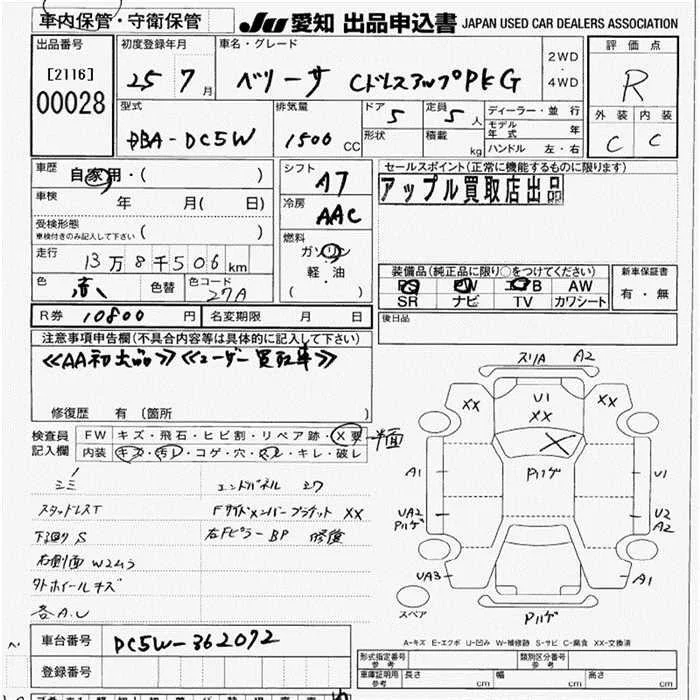 車内保管・守衛保管
JU 愛知 出品申込書 JAPAN USED CAR DEALERS ASSOCIATION
出品番号
[2116]
00028
初度登録年月
25 7 月
車名・グレード
ベリーサ Cドレスアップ PKG
2WD
・
4WD
評価点
R
外装 内装
C C
型式
DBA-DC5W
排気量
1500 CC
ドア 5
定員 5 人
形状
積載 kg
ディーラー・並行
モデル年式 年
ハンドル 左・右
車歴
自家用・( )
車検 年 月( 日)
受検形態
車検付きのみ記入して下さい ( )
走行
13万8千506 km
色 赤 色替 色コード 27A
シフト
A7
冷房
AAC
燃料
ガソリン
軽・油
( )
セールスポイント(正常に機能するものに限ります)
アップル買取店出品
装備品(純正品に限り○をつけてください)
PS PW エアB AW
SR ナビ TV カワシート
新車保証書
有・無
R券 10800 円 名変期限 月 日
後日品
注意事項申告欄(不具合内容等は具体的に記入して下さい)
≪AA初出品≫≪ユーザー買取車≫
修復歴 有(箇所 )
検査員
記入欄
FW キズ・飛石・ヒビ割・リペア跡・X要
内装 キズ・汚レ・コゲ・穴・スレ・キレ・破レ
シミ
スタッドレスT
下廻り S
右側面 Wムラ
外ホイールキズ
各A.U
エンドパネル シワ
Fサイドメンバーブラケット XX
右Fピラー BP 修復
スリA A2
XX
U1
XX
XX
X
Pハゲ
A1
UA2
Pハゲ
UA3
U1
U2
A2
A1
Pハゲ
スペア
A-キズ E-エクボ U-凹み W-補修跡 S-サビ C-腐食 XX-交換済
車台番号 DC5W-362072
登録番号
形式指定番号
参考
類別区分番号
参考
車庫証明用
参考
長さ cm 幅 cm 高さ cm